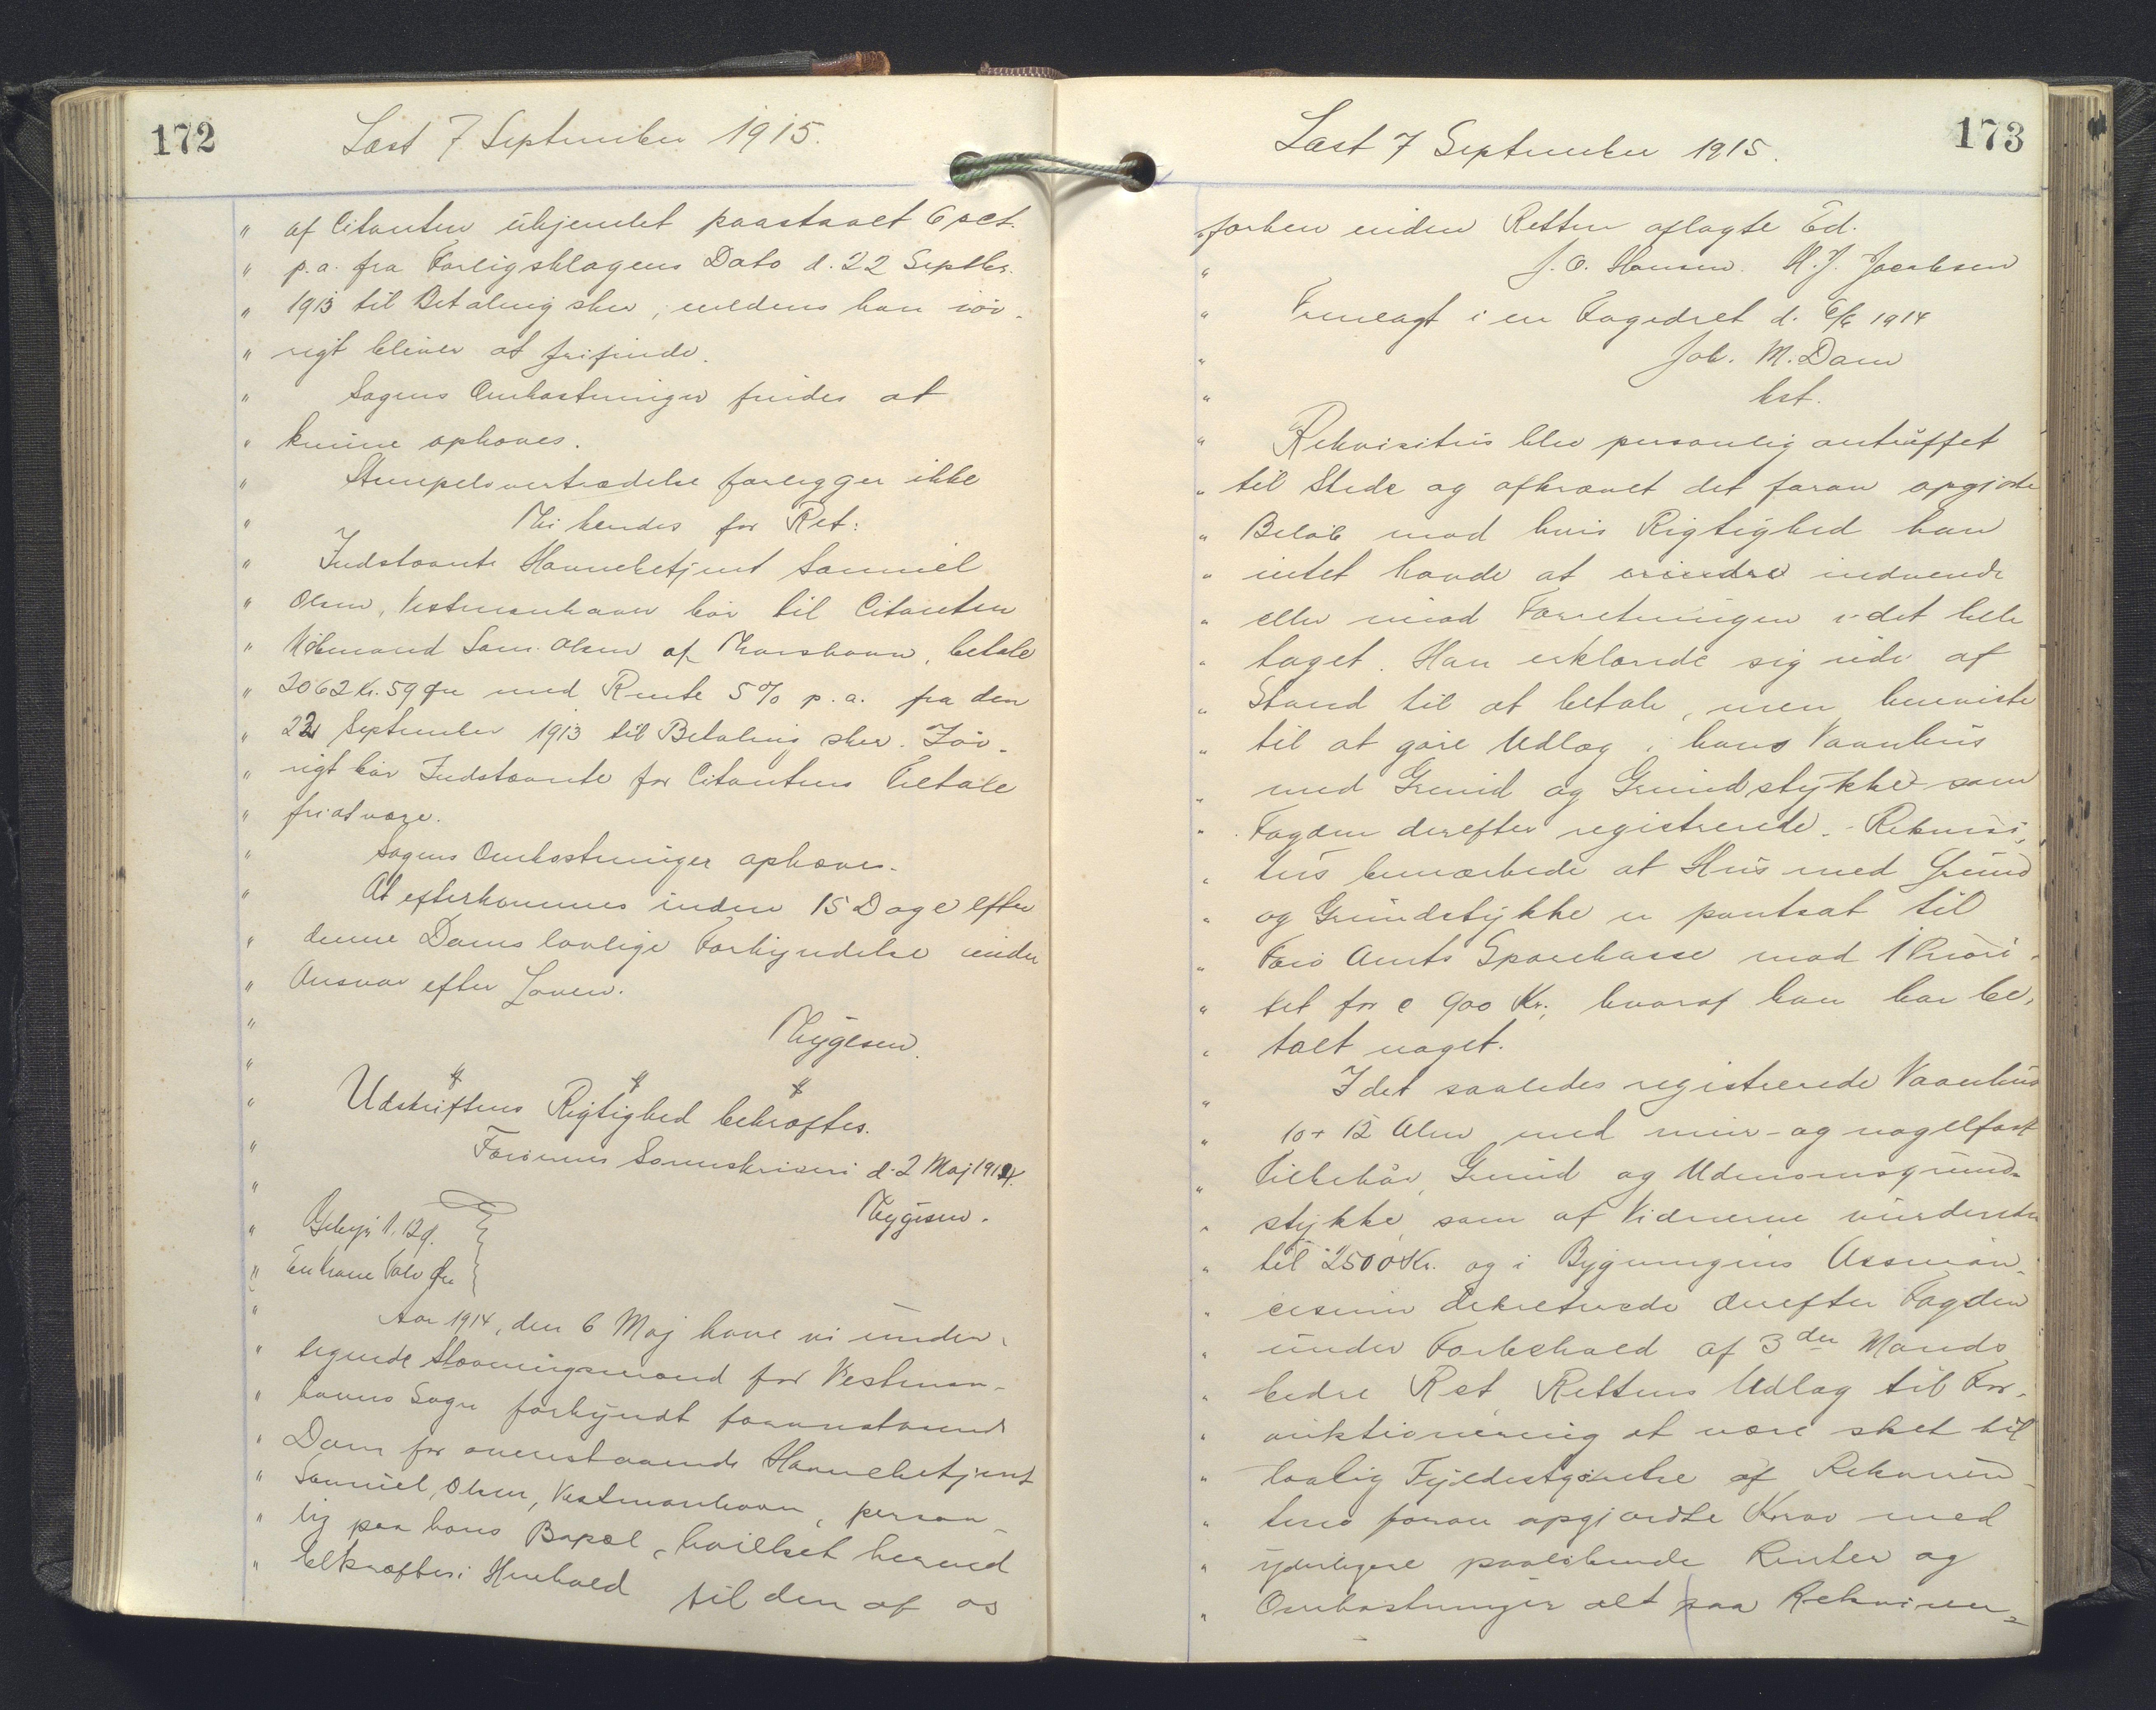 172
Læst 7 September 1915.
" af Citanten ukjendet paastaaet 6 pct.
" p.a. fra Forligsklagens Dato d. 22 Septbr.
" 1913 til Betaling sker, medens han iøv-
" rigt bliver at frifinde.
" Sagens Omkostninger findes at
" kunne ophæves.
" Stempelovertrædelse foreligger ikke
" Thi kendes for Ret:
" Indstævnte Havnebetjent Samuel
" Olsen, Vestmanhavn bør til Citanten
" Købmand Sam. Olsen af Thorshavn, betale
" 2062 Kr. 59 Øre med Rente 5% p. a. fra den
" 22 September 1913 til Betaling sker. Iøv-
" rigt bør Indstævnte for Citantens Tiltale
" fri at være.
" Sagens Omkostninger ophæves.
" At efterkommes inden 15 Dage efter
" denne Doms lovlige Forkyndelse under
" Ansvar efter Loven.
" Thygesen.
" Udskriftens Rigtighed bekræftes.
" Færøernes Sorenskriveri d. 2 Maj 1914.
" Thygesen.
" Gebyr 1. 12 Ø.
" En Krone Tolv Øre
" Aar 1914, den 6 Maj have vi under-
" tegnede Stævningsmænd for Vestman-
" havns Sogn forkyndt foranstaaende
" Dom for ovenstaaende Havnebetjent
" Samuel Olsen, Vestmanhavn, person-
" lig paa hans Bopæl, hvilket herved
" bekræftes i Henhold til den af os
173
Læst 7 September 1915.
" forhen inden Retten aflagte Ed.
" J. O. Hansen. H. J. Jacobsen
" Fremlagt i en Fogedret d. 6/6 1914
" Joh. M. Dam
" kst.
" Rekvisitus blev personlig antruffet
" til Stede og afkrævet det foran opgjorte
" Beløb mod hvis Rigtighed han
" intet havde at erindre indvende
" eller mod Forretningen i det hele
" taget. Han erklærede sig ude af
" Stand til at betale, men henviste
" til at gøre Udlæg i hans Vaanhus
" med Grund og Grundstykke som
" Fogden derefter registrerede. - Rekvisi-
" tus bemærkede at Hus med Grund
" og Grundstykke er pantsat til
" Færø Amts Sparekasse mod 1 Priori-
" tet for c 900 Kr., hvoraf han har be-
" talt noget.
" I det saaledes registrerede Vaanhus
" 10 + 12 Alen med mur- og nagelfast
" Tilbehør, Grund og Udenomsgrund-
" stykke, som af Vidnerne vurderedes
" til 2500 Kr. og i Bygningens Assuran-
" cesum dekreterede derefter Fogden
" under Forbehold af 3die Mands
" bedre Ret, Rettens Udlæg til For-
" auktionering at være sket til
" lovlig Fyldestgørelse af Rekviren-
" tens foran opgjordte Krav med
" yderligere paaløbende Renter og
" Omkostninger alt paa Rekviren-